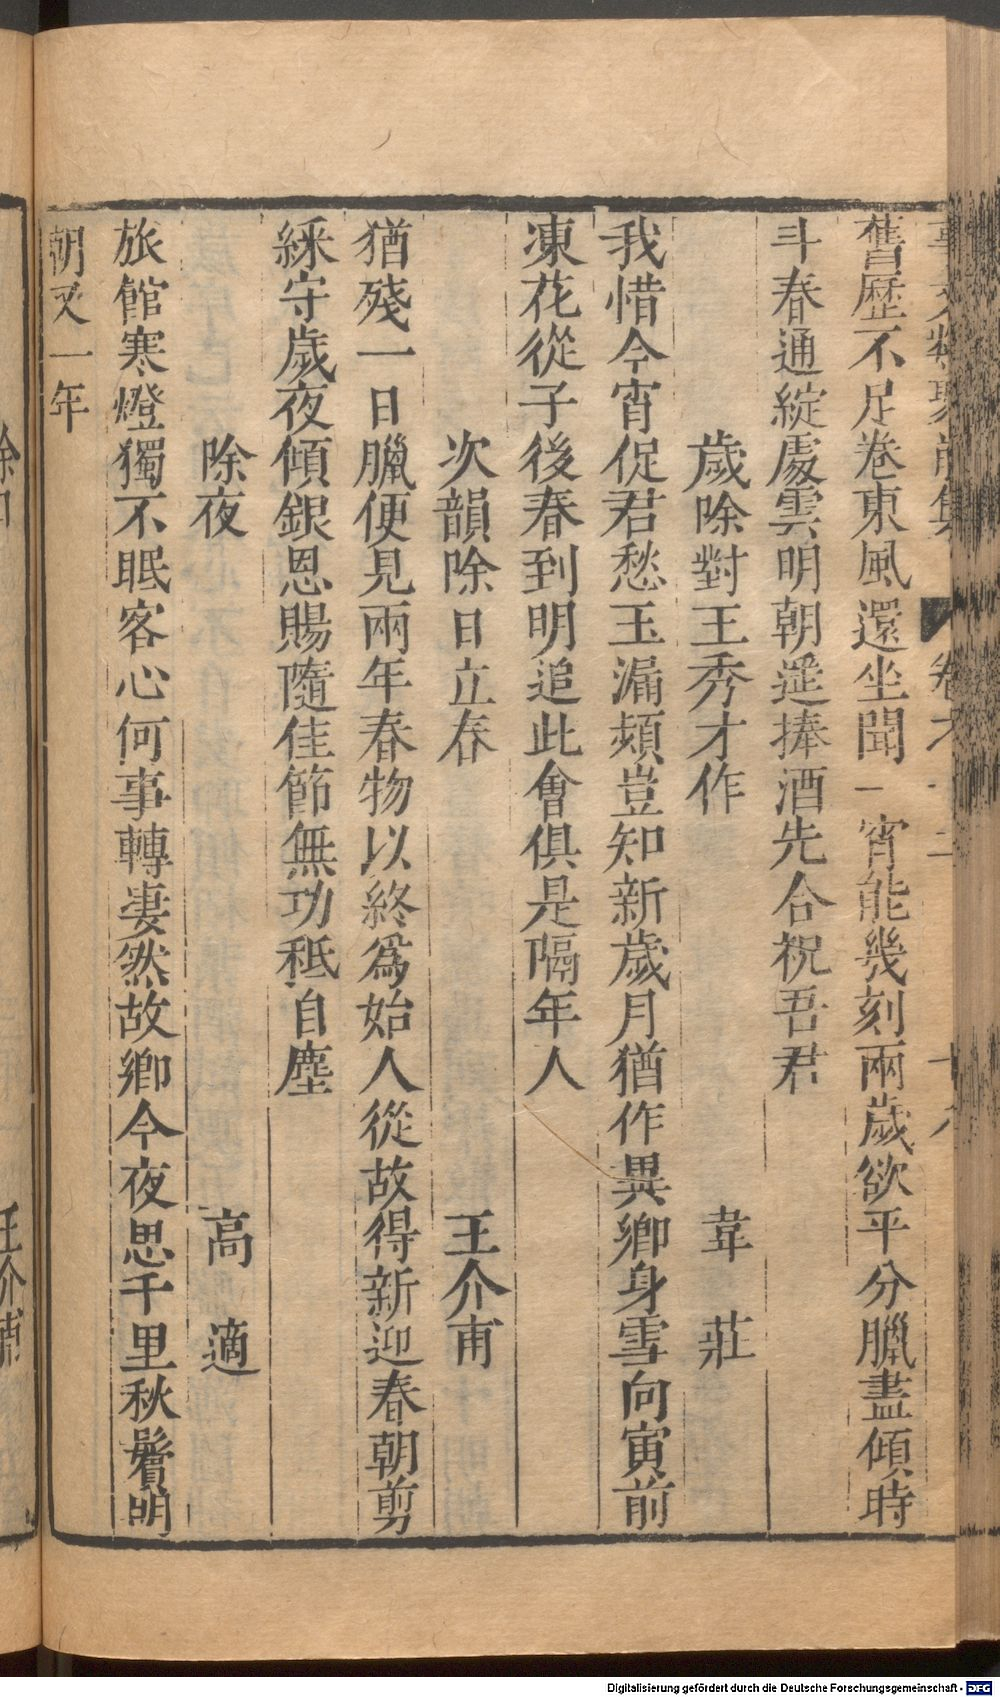 事文類聚前集 卷六 十八
舊歷不足卷東風還坐聞一宵能幾刻兩歲欲平分臘盡傾時
斗春通綻處雲明朝遥捧酒先合祝吾君
歲除對王秀才作 韋莊
我惜今宵促君愁玉漏頻豈知新歲月猶作異鄉身雪向寅前
凍花從子後春到明追此會俱是隔年人
次韻除日立春 王介甫
猶殘一日臘便見兩年春物以終爲始人從故得新迎春朝剪
綵守歲夜傾銀恩賜隨佳節無功秪自塵
除夜 高適
旅館寒燈獨不眠客心何事轉凄然故鄉今夜思千里秋鬢明
朝又一年
王介甫
Digitalisierung gefördert durch die Deutsche Forschungsgemeinschaft - DFG